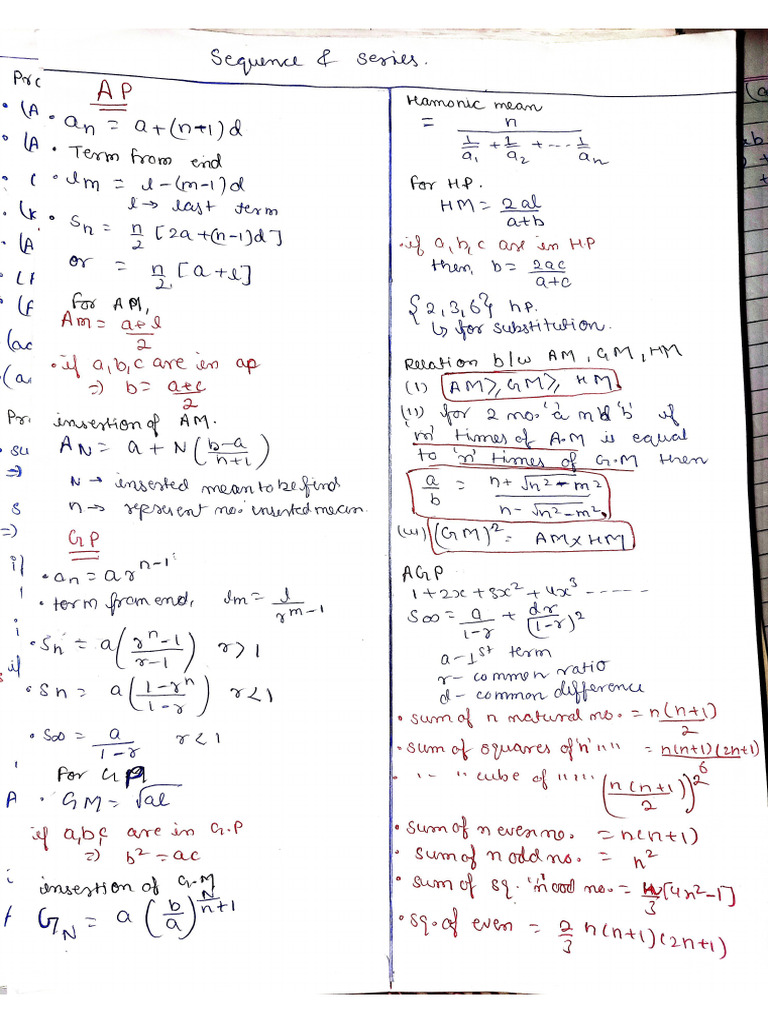 Sequence & series.
AP
• an = a+(n+1)d
• Term from end
• lm = l-(m-1)d
l → last term
• Sn = n/2 [2a+(n-1)d]
or = n/2 [a+l]
for AM,
Am = a+l/2
• if a,b,c are in ap
⇒ b = a+c/2
insertion of AM.
AN = a + N(b-a/n+1)
N → inserted mean to be find
n → represent no. inserted mean.
GP
• an = ar^n-1
• term from end, lm = l/r^m-1
• Sn = a(r^n-1/r-1) r>1
• Sn = a(1-r^n/1-r) r<1
• S∞ = a/1-r r<1
for GP
• GM = √al
if a,b,c are in G.P
⇒ b² = ac
insertion of G.M
GN = a(b/a)^N/n+1
Hamonic mean
= n/(1/a1 + 1/a2 + --- 1/an)
for HP.
HM = 2al/a+b
• if a,b,c are in HP
then, b = 2ac/a+c
{2,3,6} hp.
↳ for substitution.
Relation b/w AM, GM, HM
(i) AM≥, GM≥, HM.
(ii) for 2 no. 'a' and 'b' if
'm' times of A.M is equal
to 'n' times of G.M then
a/b = n+√n²-m²/n-√n²-m²
(iii) (GM)² = AM×HM
AGP
1+2x+3x²+4x³ ------
S∞ = a/1-r + dr/(1-r)²
a - 1st term
r - common ratio
d - common difference
• sum of n natural no. = n(n+1)/2
• sum of squares of 'n' " " = n(n+1)(2n+1)/6
• " - " cube of " " " (n(n+1)/2)²
• sum of n even no. = n(n+1)
• sum of n odd no. = n²
• sum of sq. 'n' odd no. = n/3 [4n²-1]
• sq. of even = 2/3 n(n+1)(2n+1)